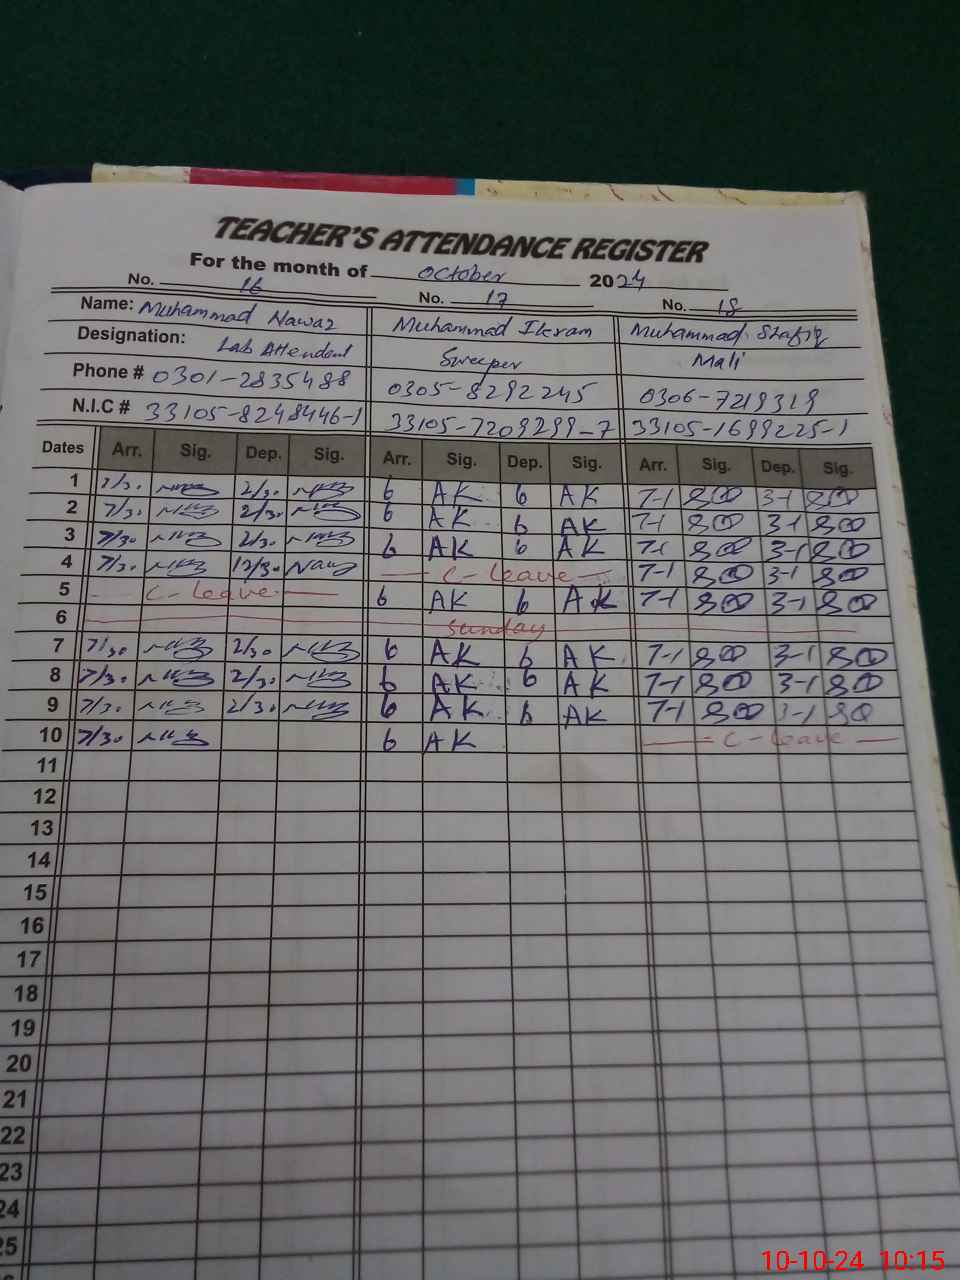 TEACHER'S ATTENDANCE REGISTER
For the month of October 2024
No. 16 No. 17 No. 18
Name: Muhammad Nawaz Muhammad Ikram Muhammad Shafiq
Designation: Lab Attendent Sweeper Mali
Phone # 0301-2835488 0305-8292245 0306-7219319
N.I.C # 33105-8248446-1 33105-7209299-7 33105-1699225-1
Dates Arr. Sig. Dep. Sig. Arr. Sig. Dep. Sig. Arr. Sig. Dep. Sig.
1 7/30 2/30 6 AK 6 AK 7-1 3-1
2 7/30 2/30 6 AK 6 AK 7-1 3-1
3 7/30 2/30 6 AK 6 AK 7-1 3-1
4 7/30 12/30 Nawz C-Leave 7-1 3-1
5 C-Leave 6 AK 6 AK 7-1 3-1
6 Sunday
7 7/30 2/30 6 AK 6 AK 7-1 3-1
8 7/30 2/30 6 AK 6 AK 7-1 3-1
9 7/30 2/30 6 AK 6 AK 7-1 3-1
10 7/30 6 AK C-Leave
11
12
13
14
15
16
17
18
19
20
21
22
23
24
25
10-10-24 10:15